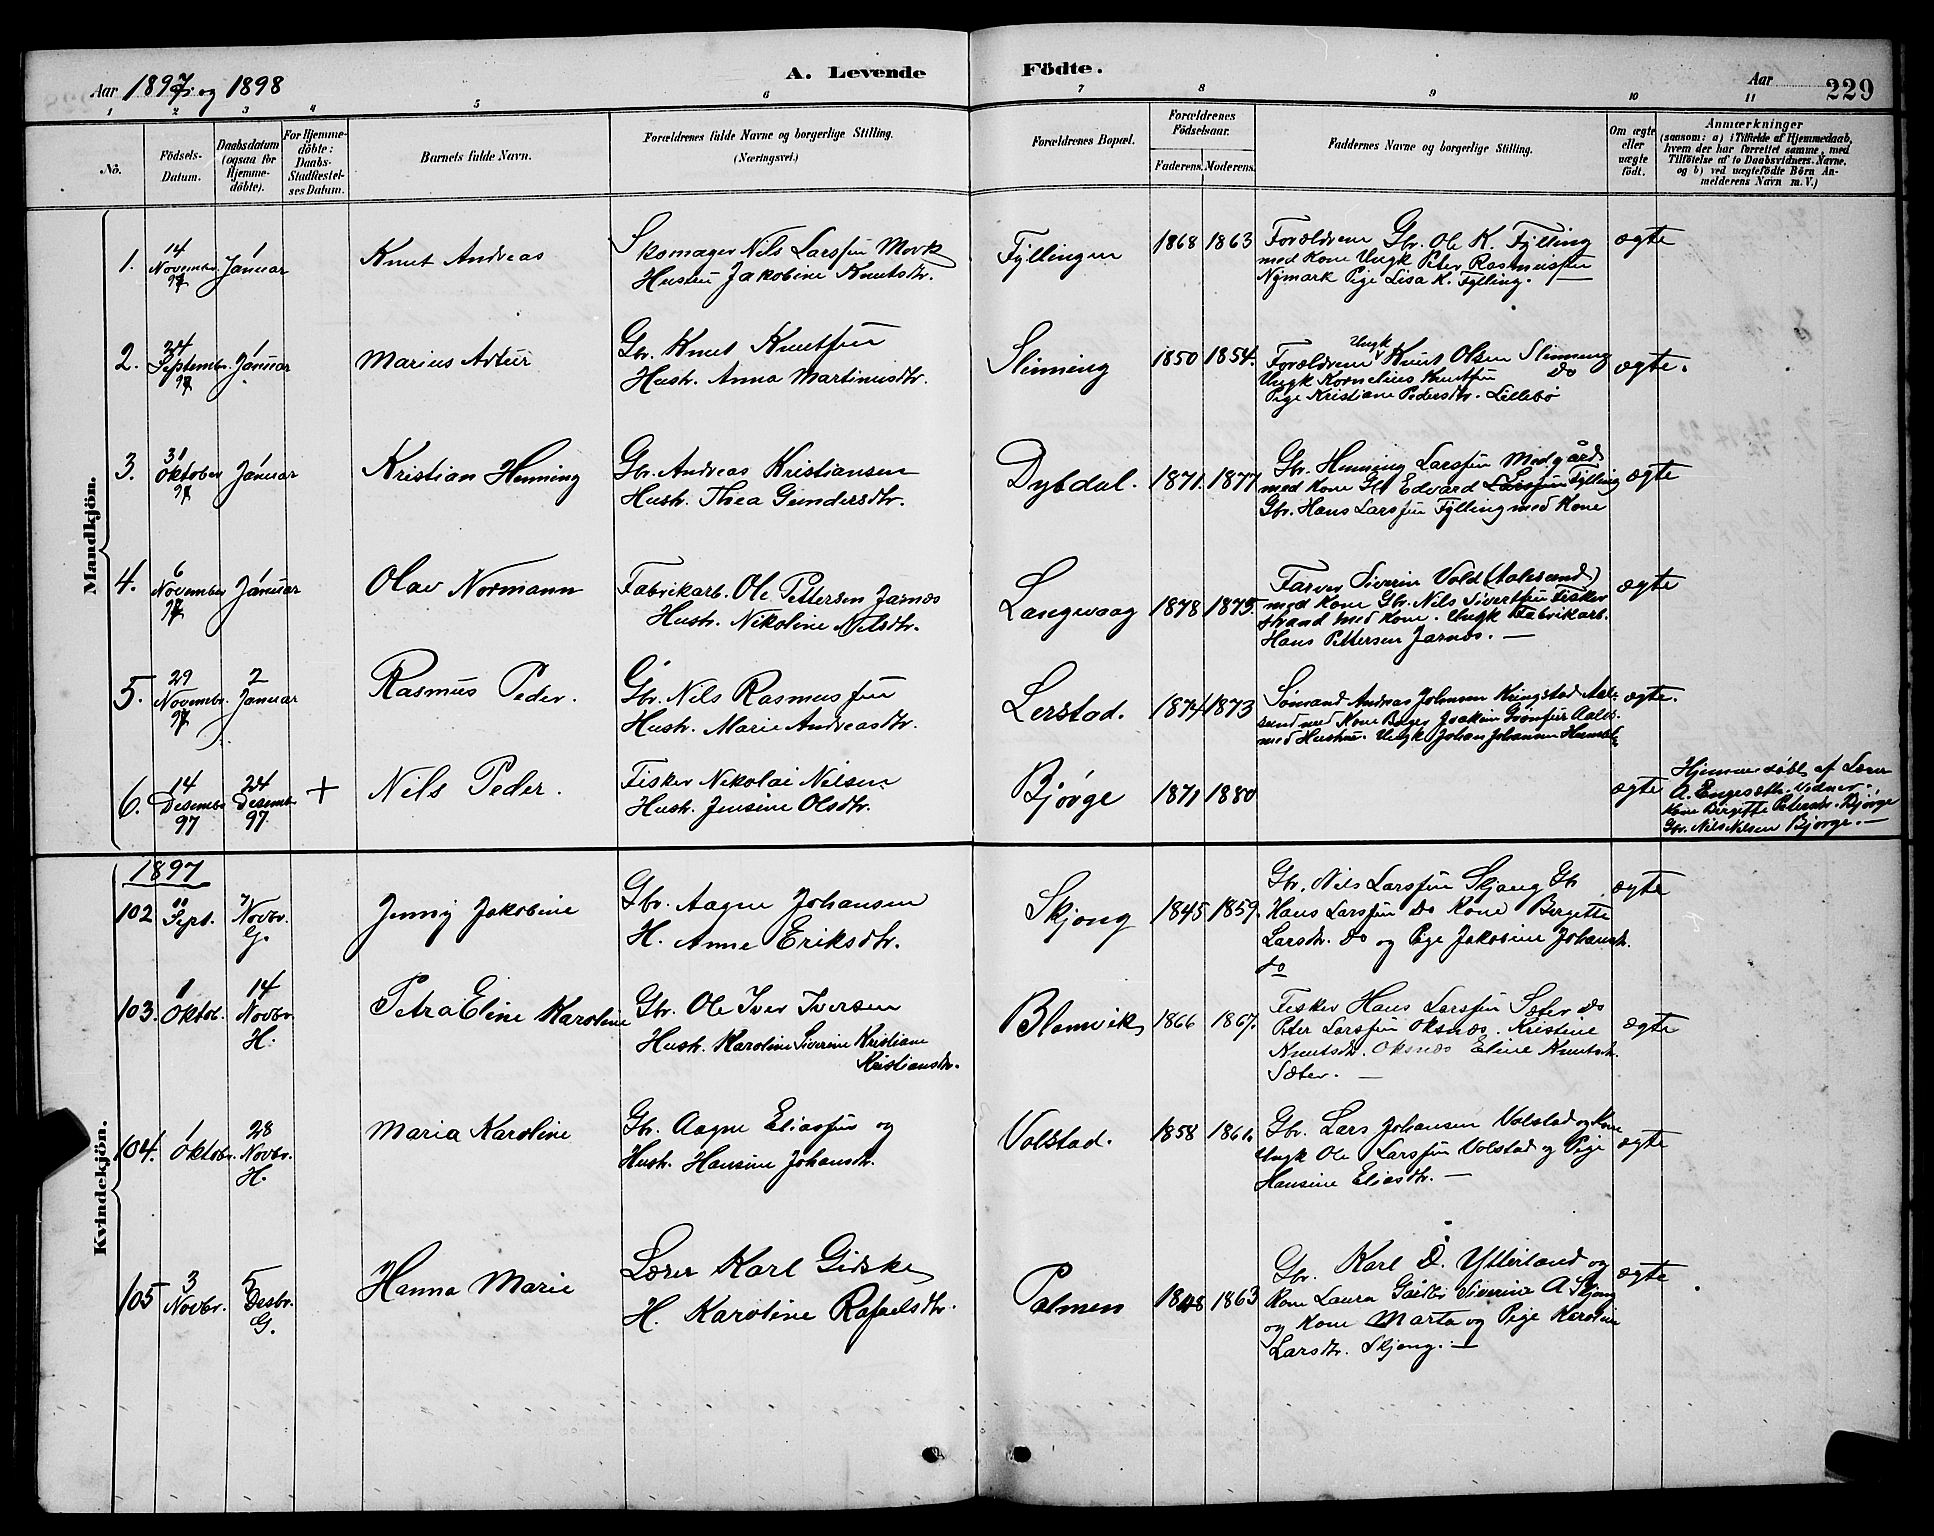 Aar 1897 og 1898
A. Levende
Födte.
Aar
229
1 2 3 4 5 6 7 8 9 10 11
No.
Födsels-
Datum.
Daabsdatum
(ogsaa for
Hjemme-
döbte).
For Hjemme-
döbte:
Daabs-
Stadfæstel-
ses Datum.
Barnets fulde Navn.
Forældrenes fulde Navne og borgerlige Stilling.
(Næringsvei.)
Forældrenes Bopæl.
Forældrenes
Födselsaar.
Faderens.
Moderens.
Faddernes Navne og borgerlige Stilling.
Om ægte
eller
uægte
födt.
Anmærkninger
(saasom: a) i Tilfælde af Hjemmedaab,
hvem der har forrettet samme, med
Tilföielse af to Daabsvidners Navne,
og b) ved uægtefödte Börn An-
melderens Navn m. V.)
Mandkjön.
1.
14
Novembr.
97
1
Januar
Knut Andreas
Skomager Nils Larssen Mork
Hustru Jakobine Knutsdtr.
Fyllingen
1868 1863
Forældrene Gbr. Ole K. Fylling
med Kone Ungk Peter Rasmussen
Nymark Pige Lisa K. Fylling. —
ægte
2.
24
Septembr.
97
1
Januar
Marius Artur
Gbr. Knut Knutsen
Hustr. Anna Martinusdtr.
Slinning
1850 1854.
Ungk
Forældrene Knut Olsen Slinning
Ungk Kornelius Knutsen Do
Pige Kristiane Pedersdtr. Lillebø
ægte.
3.
31
Oktober
97
1
Januar
Kristian Henning
Gbr. Andreas Kristiansen
Hustr. Thea Gundersdtr.
Dybdal.
1871. 1877
Gbr. Henning Larssen Modgård
med Kone Gbr Edvard Larssen Fylling
Gbr. Hans Larssen Fylling med Kone
ægte
4.
6
November
97
1
Januar
Olav Normann
Fabrikarb. Ole Pettersen Jarnæs
Hustr. Nikoline Nilsdtr.
Langevaag
1878 1875.
Farver Siverin Vold (Aalesund)
med Kone Gbr. Nils Sivertsen Fisker
strand med Kone. Ungk Fabrikarb.
Hans Pettersen Jarnæs. —
ægte
5.
29
Novembr.
97
2
Januar
Rasmus Peder.
Gbr. Nils Rasmussen
Hustr. Marie Andreasdtr.
Lerstad.
1874 1873
Sømand Andreas Johnsen Ringstad Aale-
sund med Kone Bager Joakim Aales.
med Hustru. Ungk Johan Johansen
ægte.
6.
14
Desembr
97
24
Desembr
97
+
Nils Peder.
Fisker Nikolai Nilsen
Hustr. Jensine Olsdtr.
Bjørge
1871 1880
ægte
Hjemmedøbt af Lærer
A. Engesæth. Vidner.
Kone Bergette Petersdtr. Bjørge
Gbr. Nils Nilsen Bjørge. —
Kvindekjön.
1897
102
11
Sept.
7
Novbr.
G.
Jenny Jakobine
Gbr. Aagne Johansen
H. Anne Eriksdtr.
Skjong
1845 1859.
Gbr. Nils Larssen Skjong Gbr
Hans Larssen Do Kone Bergette
Larsdtr. Do og Pige Jakobine Johansdtr.
do
ægte
103.
1
Oktob.
14
Novbr.
H.
Petra Eline Karoline
Gbr. Ole Iver Iversen
Hustr. Karoline Siverine Kristiane
Kristiansdtr.
Blomvik
1866 1867.
Fisker Hans Larssen Sæter Do
Peter Larssen Oksnæs. Kristine
Knutsdtr. Oksnæs Eline Knutsdtr.
Sæter. —
ægte
104.
1
Oktobr.
28
Novbr.
H.
Maria Karoline
Gbr. Aagne Eliassen og
Hustr. Hansine Johansdtr.
Volstad.
1858 1861.
Gbr. Lars Johansen Volstad og Kone
Ungk Ole Larssen Volstad og Pige
Hansine Eliasdtr. —
ægte
105
3
Novbr.
5
Desbr.
G.
Hanna Marie
Lærer Karl Giske
H. Karoline Rafaelsdtr.
Palmen
1848 1863
Gbr. Karl O. Ytterland og
Kone Laura Siverine A Skjong
og Kone Marta og Pige Karoline
Larsdtr. Skjong. —
ægte